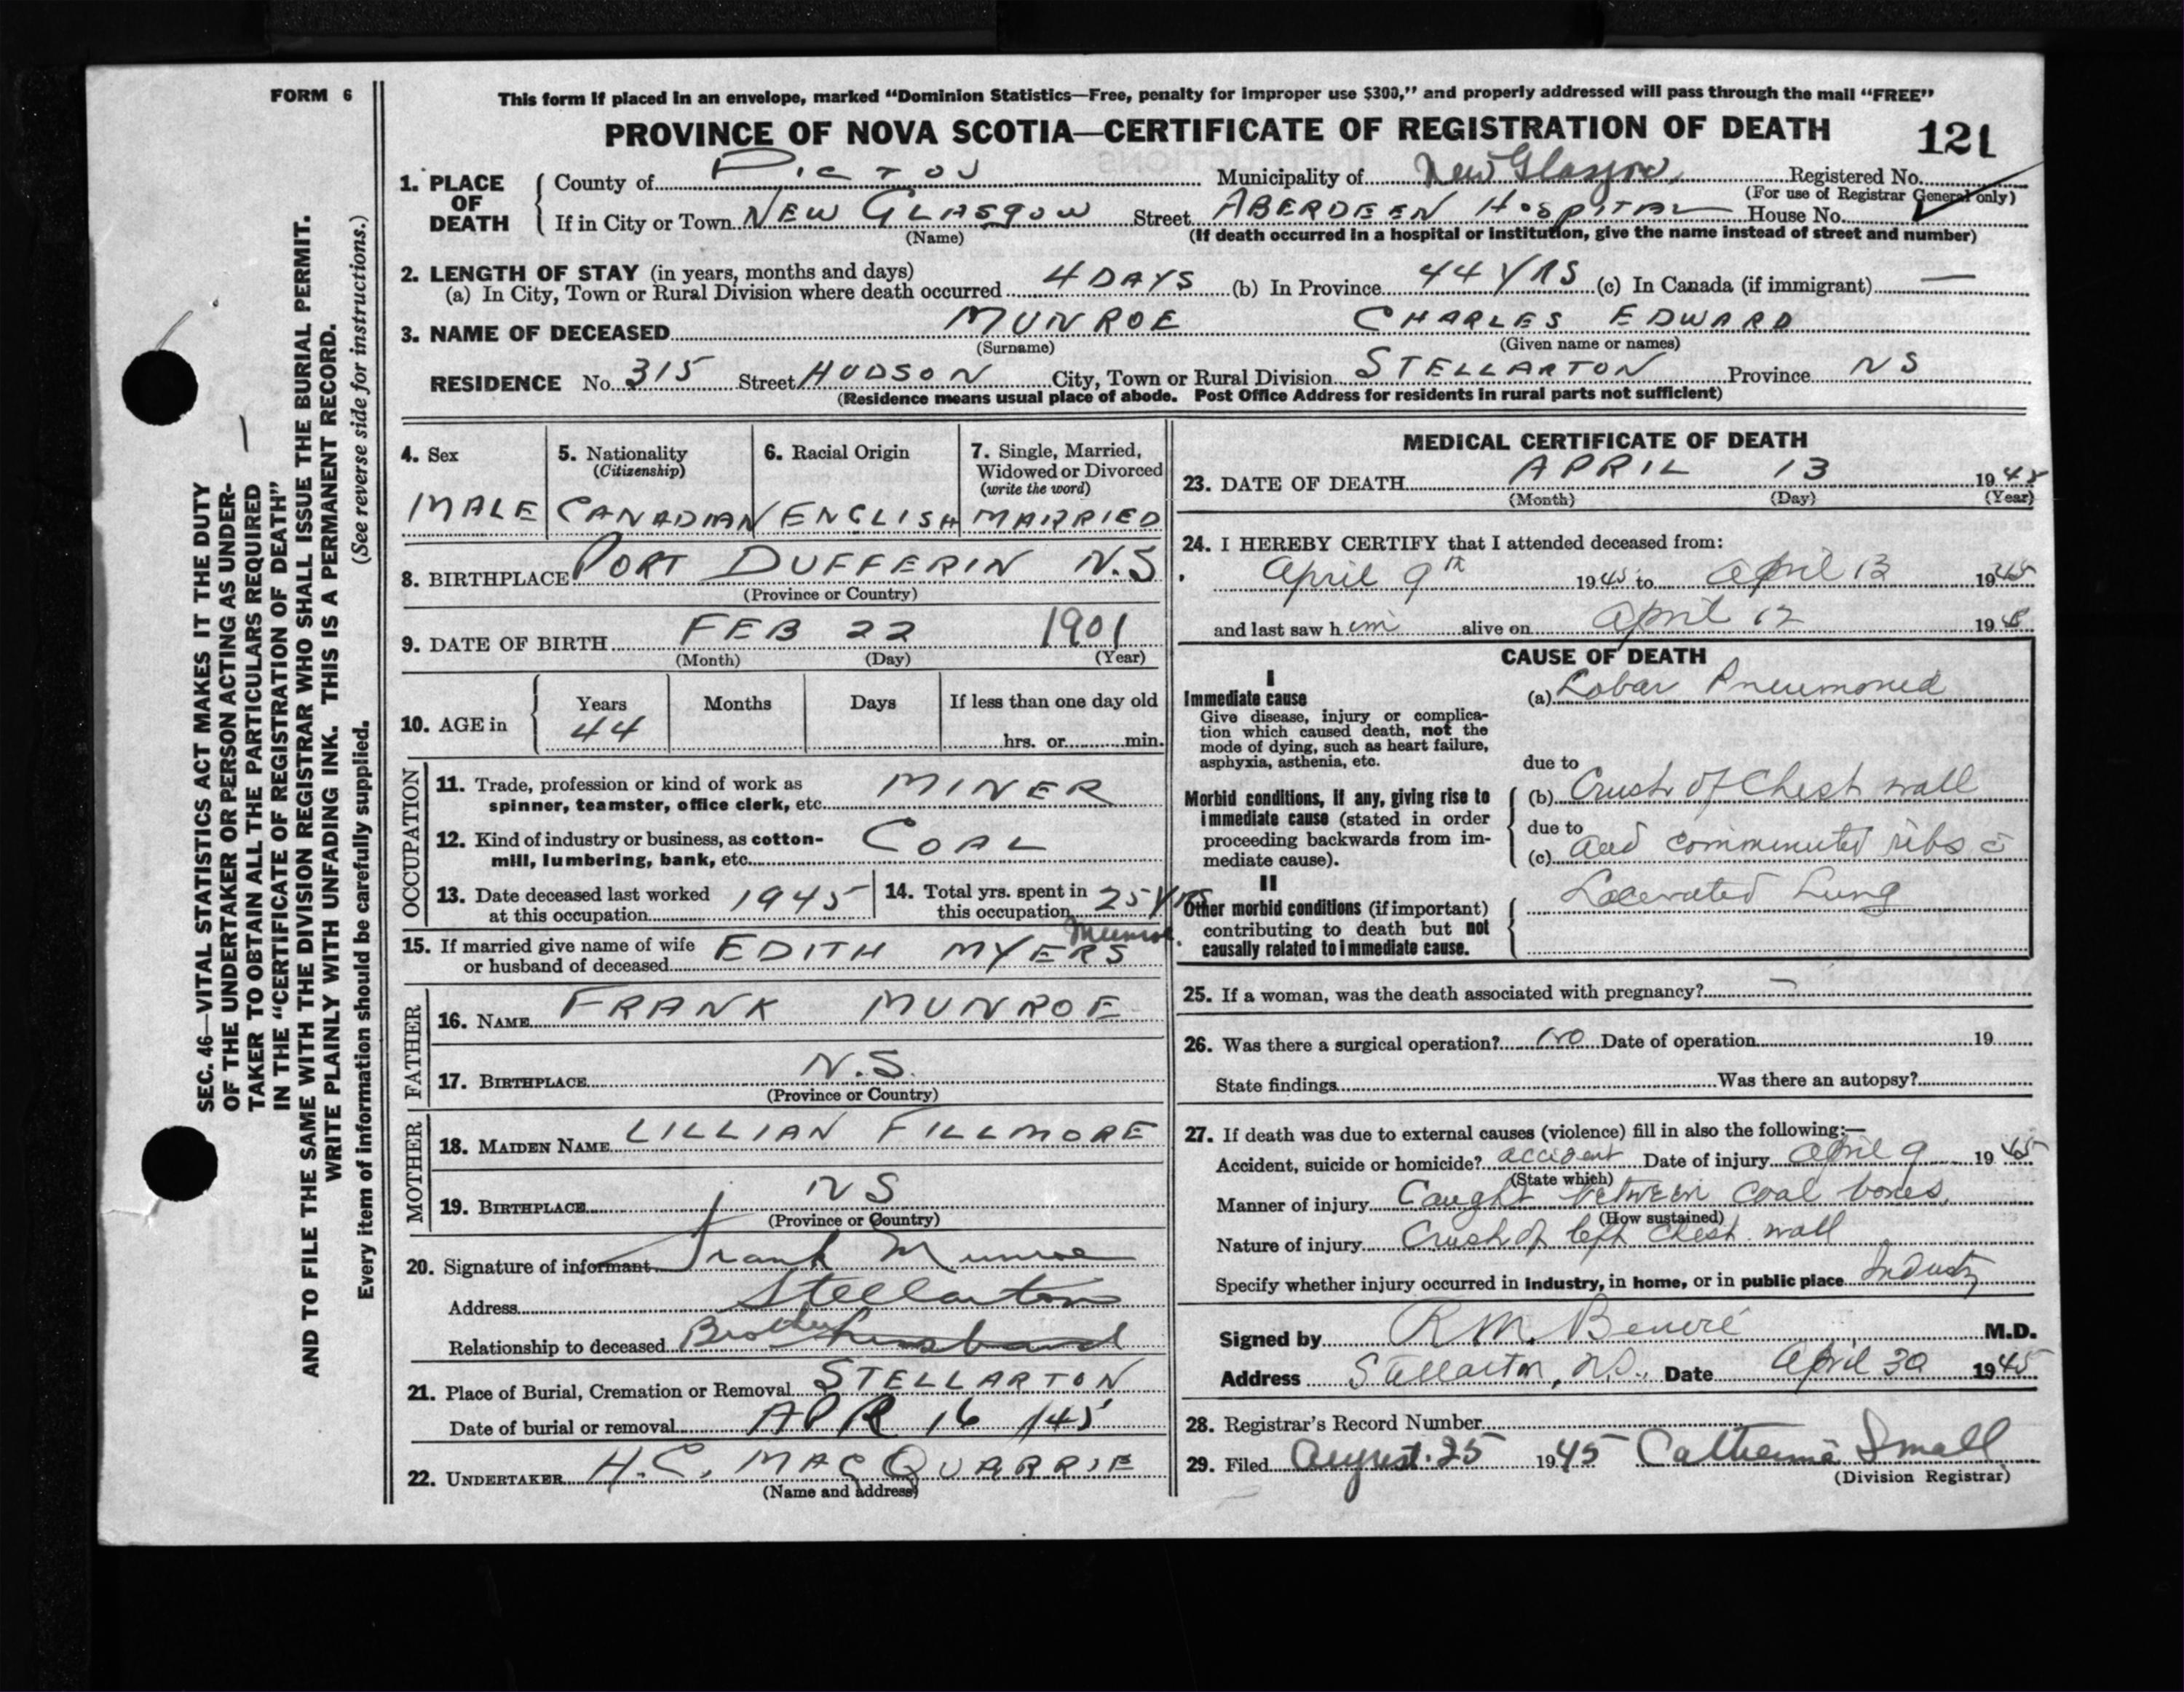 FORM 6
This form if placed in an envelope, marked "Dominion Statistics—Free, penalty for improper use $300," and properly addressed will pass through the mail "FREE"
PROVINCE OF NOVA SCOTIA—CERTIFICATE OF REGISTRATION OF DEATH 121
1. PLACE OF DEATH
County of PICTOU Municipality of New Glasgow Registered No.
(For use of Registrar General only)
If in City or Town NEW GLASGOW Street ABERDEEN HOSPITAL House No.
(Name) (If death occurred in a hospital or institution, give the name instead of street and number)
2. LENGTH OF STAY (in years, months and days)
(a) In City, Town or Rural Division where death occurred 4 DAYS (b) In Province 44 YRS (c) In Canada (if immigrant) —
3. NAME OF DECEASED MUNROE CHARLES EDWARD
(Surname) (Given name or names)
RESIDENCE No. 315 Street HUDSON City, Town or Rural Division STELLARTON Province NS
(Residence means usual place of abode. Post Office Address for residents in rural parts not sufficient)
4. Sex
MALE
5. Nationality
(Citizenship)
CANADIAN
6. Racial Origin
ENGLISH
7. Single, Married,
Widowed or Divorced
(write the word)
MARRIED
8. BIRTHPLACE PORT DUFFERIN N.S
(Province or Country)
9. DATE OF BIRTH FEB 22 1901
(Month) (Day) (Year)
10. AGE in
Years Months Days If less than one day old
44 hrs. or min.
OCCUPATION
11. Trade, profession or kind of work as
spinner, teamster, office clerk, etc. MINER
12. Kind of industry or business, as cotton-
mill, lumbering, bank, etc. COAL
13. Date deceased last worked
at this occupation 1945
14. Total yrs. spent in
this occupation 25 YRS
15. If married give name of wife
or husband of deceased EDITH MYERS Munroe.
FATHER
16. NAME FRANK MUNROE
17. BIRTHPLACE N.S.
(Province or Country)
MOTHER
18. MAIDEN NAME LILLIAN FILLMORE
19. BIRTHPLACE NS
(Province or Country)
20. Signature of informant Frank Munroe
Address Stellarton
Relationship to deceased Brother husband
21. Place of Burial, Cremation or Removal STELLARTON
Date of burial or removal APR 16 /45
22. UNDERTAKER H.C. MACQUARRIE
(Name and address)
MEDICAL CERTIFICATE OF DEATH
23. DATE OF DEATH APRIL 13 1945
(Month) (Day) (Year)
24. I HEREBY CERTIFY that I attended deceased from:
April 9th 1945 to April 13 1945
and last saw him alive on April 12 1945
CAUSE OF DEATH
I
Immediate cause
Give disease, injury or complica-
tion which caused death, not the
mode of dying, such as heart failure,
asphyxia, asthenia, etc.
(a) Lobar
due to
Morbid conditions, if any, giving rise to
immediate cause (stated in order
proceeding backwards from im-
mediate cause).
(b) Crush of Chest wall
due to
(c) and comminuted ribs c̄
II
Other morbid conditions (if important)
contributing to death but not
causally related to immediate cause.
Lacerated Lung
25. If a woman, was the death associated with pregnancy? —
26. Was there a surgical operation? no Date of operation 19
State findings Was there an autopsy?
27. If death was due to external causes (violence) fill in also the following:—
Accident, suicide or homicide? accident Date of injury April 9 1945
(State which)
Manner of injury Caught between coal boxes.
(How sustained)
Nature of injury Crush of left chest wall
Specify whether injury occurred in industry, in home, or in public place Industry
Signed by R M. M.D.
Address Stellarton, N.S. Date April 30 1945
28. Registrar's Record Number
29. Filed August 25 1945 Catherine Small
(Division Registrar)
SEC. 46—VITAL STATISTICS ACT MAKES IT THE DUTY
OF THE UNDERTAKER OR PERSON ACTING AS UNDER-
TAKER TO OBTAIN ALL THE PARTICULARS REQUIRED
IN THE "CERTIFICATE OF REGISTRATION OF DEATH"
AND TO FILE THE SAME WITH THE DIVISION REGISTRAR WHO SHALL ISSUE THE BURIAL PERMIT.
WRITE PLAINLY WITH UNFADING INK. THIS IS A PERMANENT RECORD.
Every item of information should be carefully supplied. (See reverse side for instructions.)